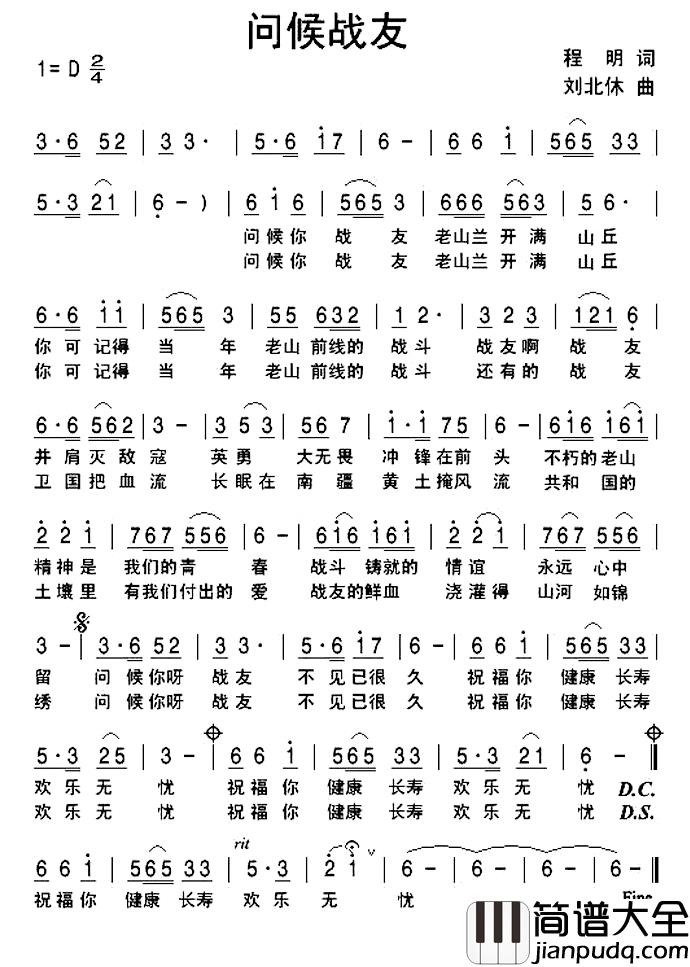 问候战友
1=D 2/4
程 明 词
刘北休 曲
3·6 52 | 3 3· | 5·6 i7 | 6 - | 6 6 i | 565 33 |
5·3 21 | 6 - ) | 6 i 6 | 565 3 | 666 563 | 5 6· |
问候你 战 友 老山兰开满 山丘
问候你 战 友 老山兰开满 山丘
6·6 ii | 565 3 | 55 632 | 1 2· | 3 2 3 | 121 6 |
你可记得 当 年 老山前线的 战斗 战友啊 战 友
你可记得 当 年 老山前线的 战斗 还有的 战 友
6·6 562 | 3 - | 3 5 3 | 56 7 | i·i 75 | 6 - | 6i6 i6i |
并肩灭敌寇 英勇 大无畏 冲锋在前头 不朽的老山
卫国把血流 长眠在 南疆 黄土掩风流 共和国的
2 2 i | 767 556 | 6 - | 6i6 i6i | 2 i i | 767 556 |
精神是 我们的青 春 战斗铸就的 情谊 永远心中
土壤里 有我们付出的 爱 战友的鲜血 浇灌得 山河如锦
3 - | 3·6 52 | 3 3· | 5·6 i7 | 6 - | 6 6 i | 565 33 |
留 问候你呀 战友 不见已很久 祝福你 健康长寿
绣 问候你呀 战友 不见已很久 祝福你 健康长寿
5·3 25 | 3 - | 6 6 i | 565 33 | 5·3 21 | 6 - ‖
欢乐无 忧 祝福你 健康长寿 欢乐无 忧 D.C.
欢乐无 忧 祝福你 健康长寿 欢乐无 忧 D.S.
rit
6 6 i | 565 33 | 5·3 | 2 i ∨ | 6 - | 6 - | 6 - | 6 - ‖
祝福你 健康长寿 欢乐 无 忧 Fine
简谱大全
jianpudq.com